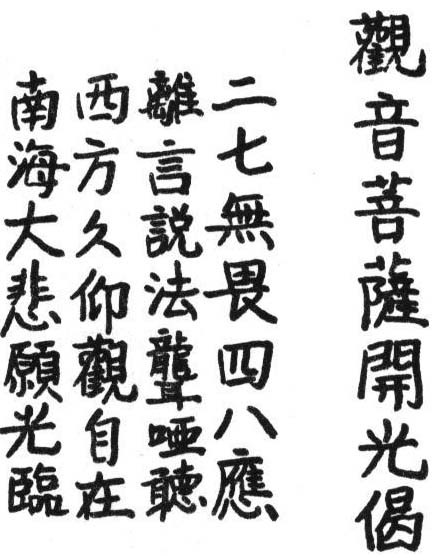 觀音菩薩開光偈
二七無畏四八應
離言説法聾啞聽
西方久仰觀自在
南海大悲願光臨